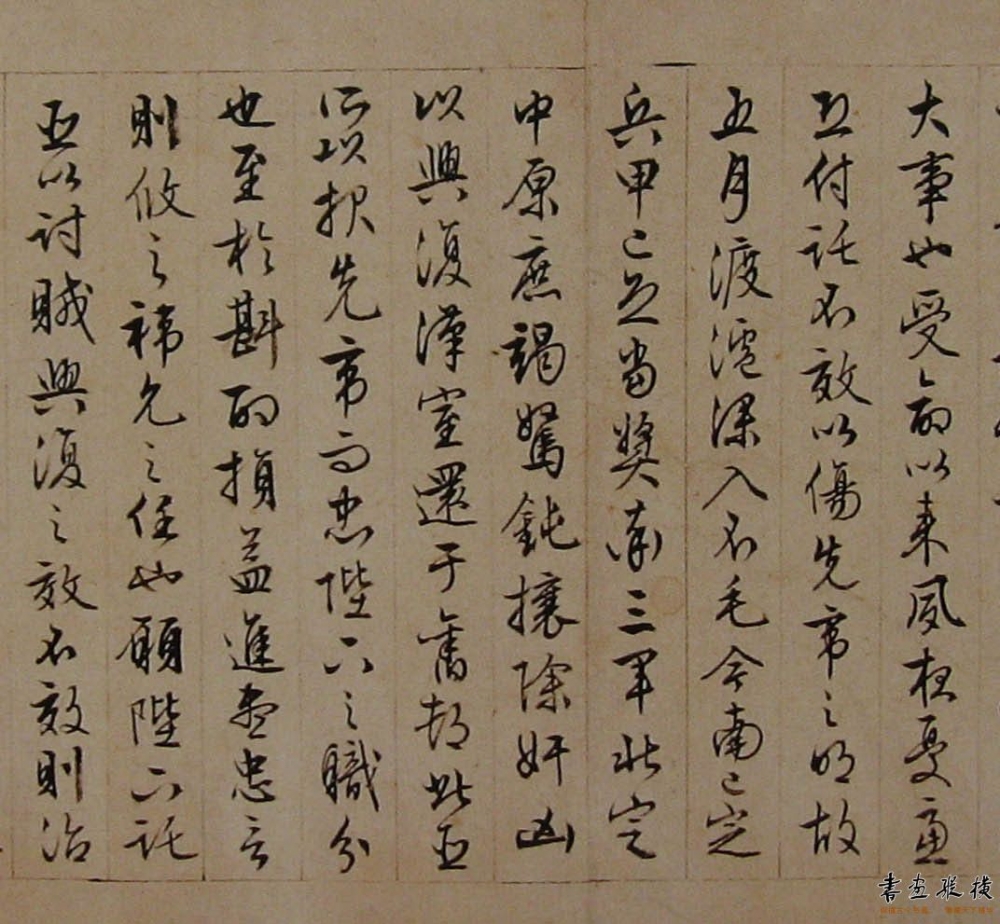 大事也受命以来夙夜憂慮
恐付託不效以傷先帝之明故
五月渡瀘深入不毛今南已定
兵甲已足當獎率三軍北定
中原庶竭駑鈍攘除奸凶
以興復漢室還于舊都此臣
所以報先帝而忠陛下之職分
也至於斟酌損益進盡忠言
則攸之禕允之任也願陛下託
臣以討賊興復之效不效則治
書畫縱橫